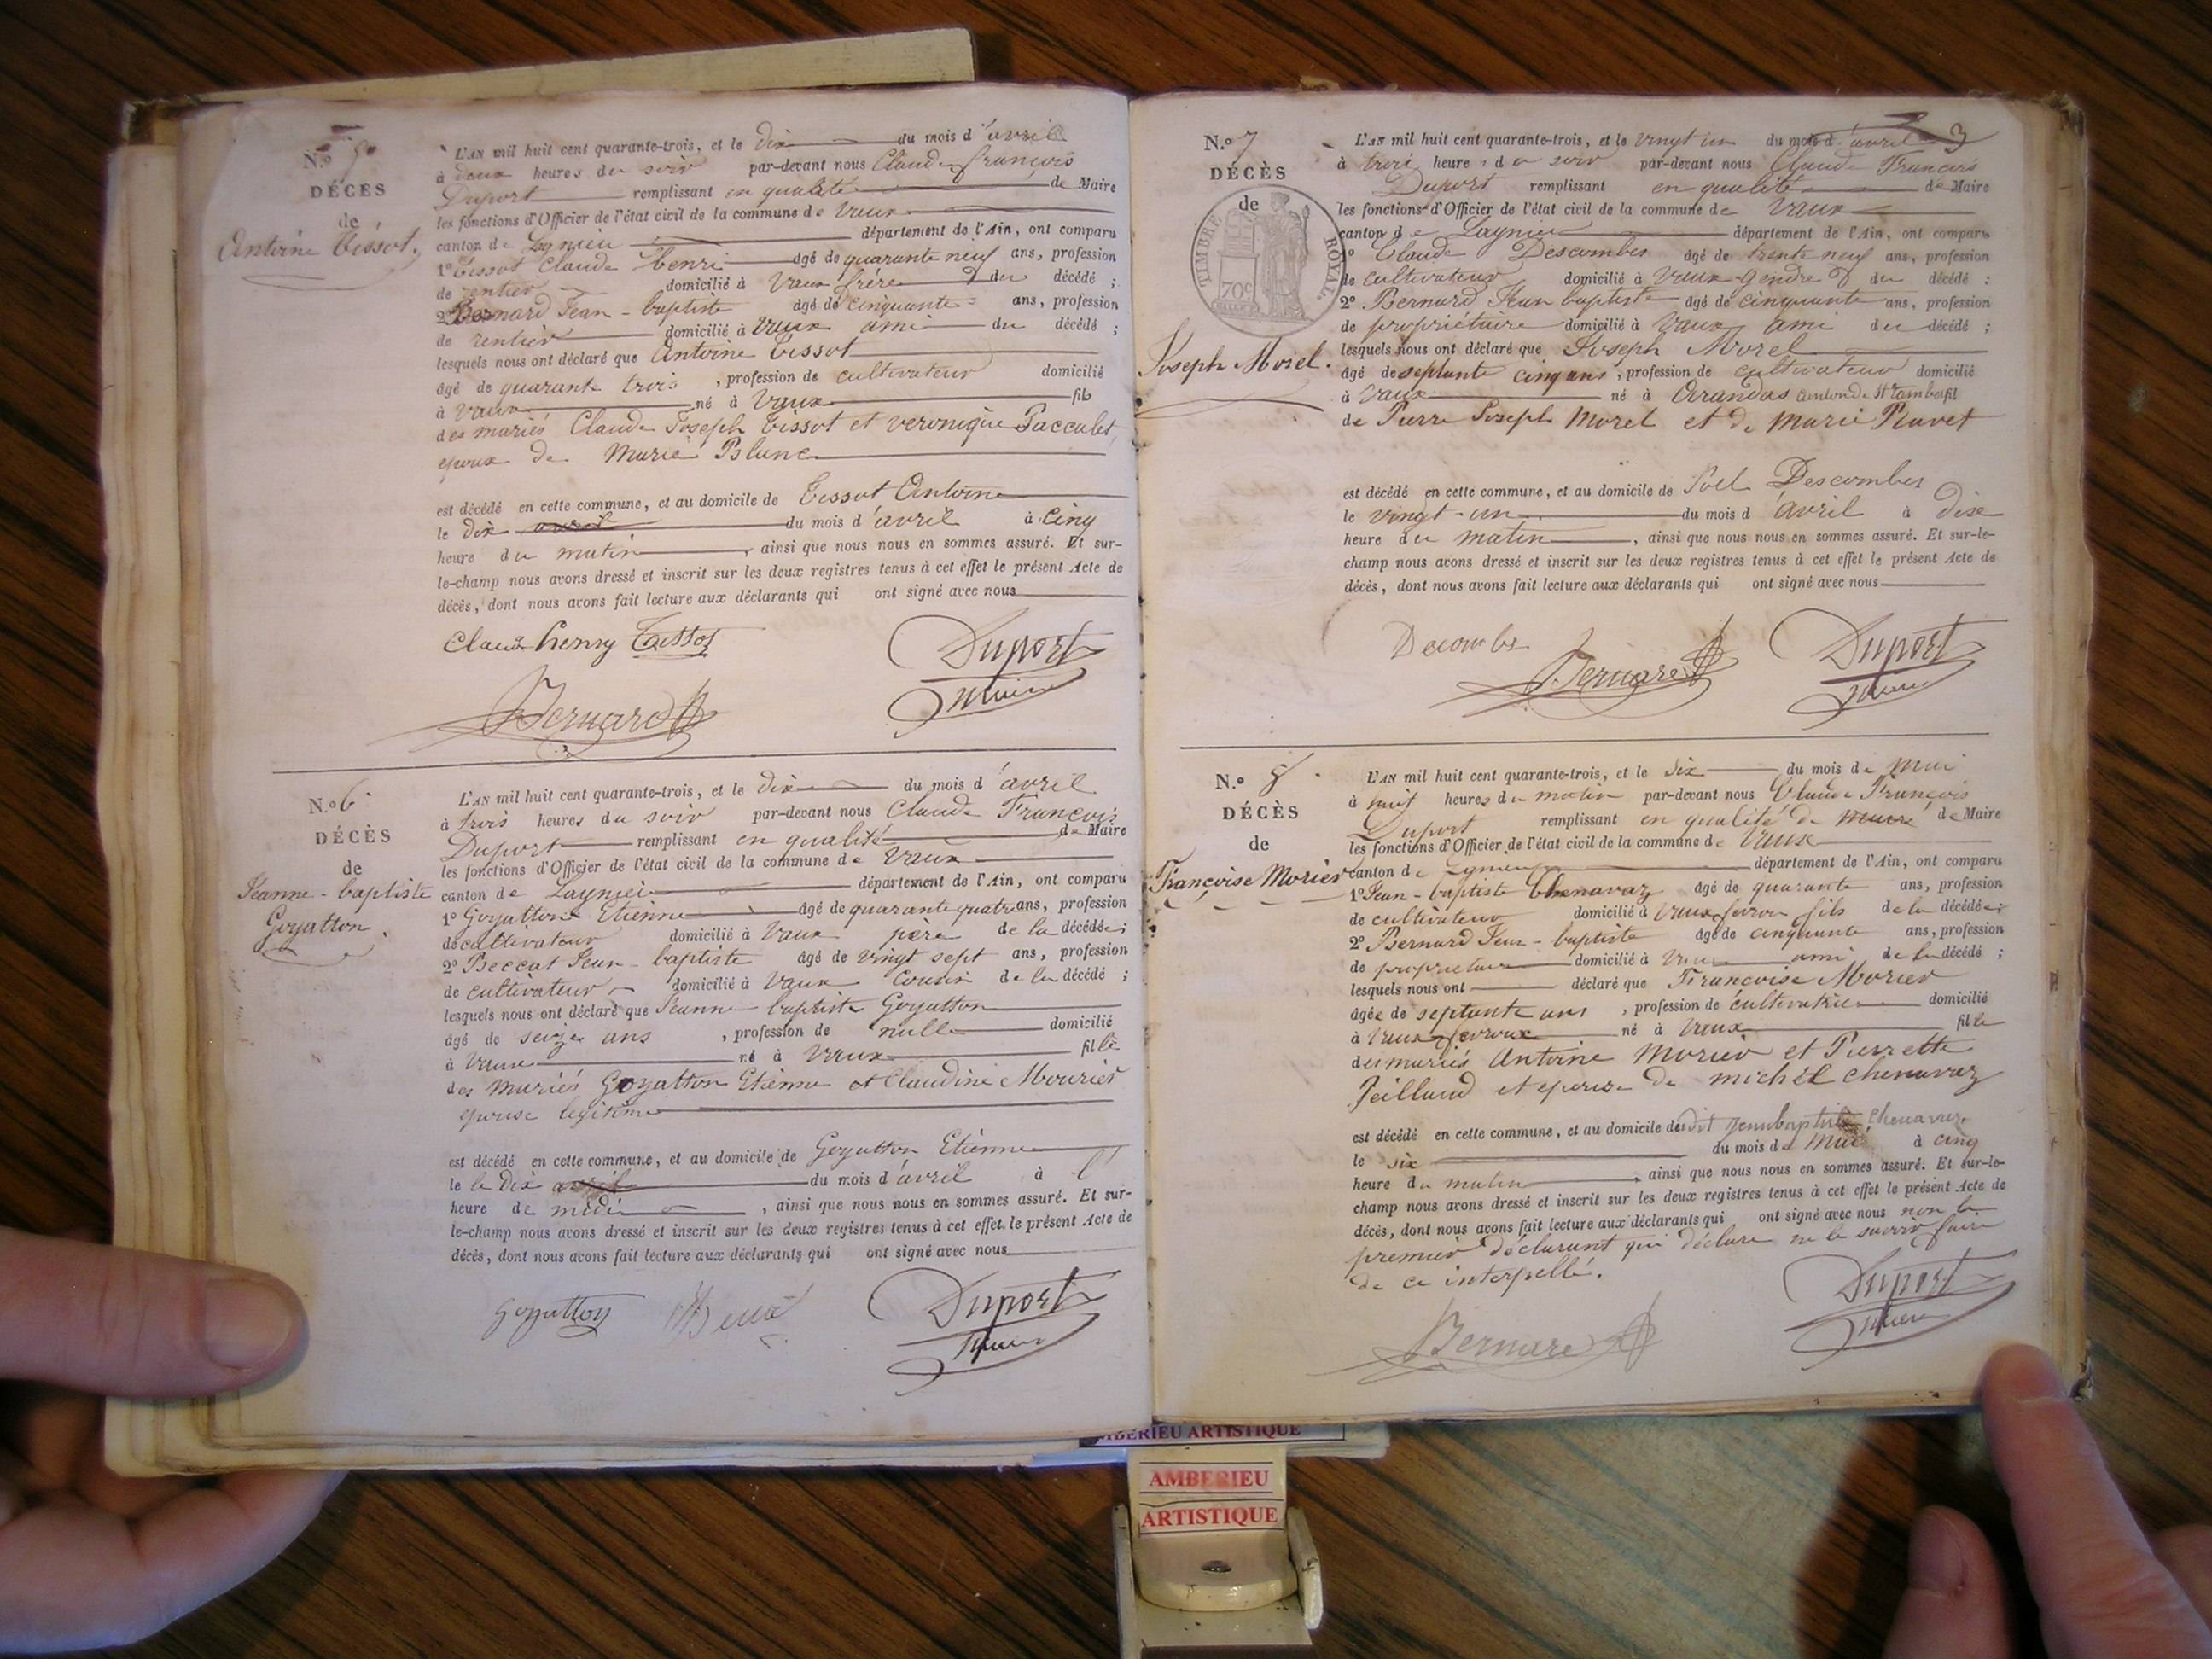 N.o 5
DÉCÈS
de
Antoine Tissot.
L'AN mil huit cent quarante-trois, et le dix du mois d'avril
à deux heures du soir par-devant nous Claude françois
Duport remplissant en qualité de Maire
les fonctions d'Officier de l'état civil de la commune de Vaux
canton de Lagnieu département de l'Ain, ont comparu
1o Tissot Claude henri âgé de quarante neuf ans, profession
de rentier domicilié à Vaux frère du décédé ;
2o Bernard Jean-baptiste âgé de cinquante ans, profession
de rentier domicilié à Vaux ami du décédé ;
lesquels nous ont déclaré que Antoine Tissot
âgé de quarante trois , profession de cultivateur domicilié
à Vaux né à Vaux fils
des mariés Claude Joseph Tissot et veronique Paccalet,
epoux de Marie Blanc
est décédé en cette commune, et au domicile de Tissot Antoine
le dix avril du mois d'avril à cinq
heure du matin , ainsi que nous nous en sommes assuré. Et sur-
le-champ nous avons dressé et inscrit sur les deux registres tenus à cet effet le présent Acte de
décès, dont nous avons fait lecture aux déclarants qui ont signé avec nous
Claude henry Tissot
Duport
Maire
Bernard
N.o 6
DÉCÈS
de
Jeanne-baptiste
Goyatton.
L'AN mil huit cent quarante-trois, et le dix du mois d'avril
à trois heures du soir par-devant nous Claude François
Duport remplissant en qualité de Maire
les fonctions d'Officier de l'état civil de la commune de Vaux
canton de Lagnieu département de l'Ain, ont comparu
1o Goyatton Etienne âgé de quarante quatre ans, profession
de cultivateur domicilié à Vaux père de la décédée;
2o Beccat Jean-baptiste âgé de vingt sept ans, profession
de cultivateur domicilié à Vaux Cousin de la décédé ;
lesquels nous ont déclaré que Jeanne baptiste Goyatton
âgé de seize ans , profession de nulle domicilié
à Vaux né à Vaux fille
des mariés Goyatton Etienne et Claudine Mourier
epouse legitime
est décédé en cette commune, et au domicile de Goyatton Etienne
le le dix avril du mois d'avril à l'
heure de midi , ainsi que nous nous en sommes assuré. Et sur-
le-champ nous avons dressé et inscrit sur les deux registres tenus à cet effet le présent Acte de
décès, dont nous avons fait lecture aux déclarants qui ont signé avec nous
Goyatton
Duport
Maire
3
N.o 7
DÉCÈS
de
TIMBRE ROYAL.
70c
Joseph Morel.
L'AN mil huit cent quarante-trois, et le vingt un du mois d'avril
à trois heures du soir par-devant nous Claude Francois
Duport remplissant en qualité de Maire
les fonctions d'Officier de l'état civil de la commune de Vaux
canton de Lagnieu département de l'Ain, ont comparu
1o Claude Descombes âgé de trente neuf ans, profession
de cultivateur domicilié à Vaux gendre du décédé :
2o Bernard Jean baptiste âgé de cinquante ans, profession
de propriétaire domicilié à Vaux ami du décédé ;
lesquels nous ont déclaré que Joseph Morel
âgé de septante cinq ans , profession de cultivateur domicilié
à Vaux né à Arandas canton de St Rambert fil
de Pierre Joseph Morel et de Marie Ravet
est décédé en cette commune, et au domicile de Descombes
le vingt-un du mois d'avril à dix
heure du matin , ainsi que nous nous en sommes assuré. Et sur-le-
champ nous avons dressé et inscrit sur les deux registres tenus à cet effet le présent Acte de
décès, dont nous avons fait lecture aux déclarants qui ont signé avec nous
Decombe
Bernard
Duport
Maire
N.o 8
DÉCÈS
de
Françoise Morier
L'AN mil huit cent quarante-trois, et le six du mois de mai
à huit heures du matin par-devant nous Claude François
Duport remplissant en qualité de maire de Maire
les fonctions d'Officier de l'état civil de la commune de Vaux
canton de Lagnieu département de l'Ain, ont comparu
1o Jean-baptiste Chenavaz âgé de quarante ans, profession
de cultivateur domicilié à Vaux fils de la décédée;
2o Bernard Jean-baptiste âgé de cinquante ans, profession
de proprietaire domicilié à Vaux ami de la décédé ;
lesquels nous ont déclaré que Francoise Morier
âgée de septante ans , profession de cultivatrice domicilié
à Vaux né à Vaux fille
des mariés Antoine Morier et Pierrette
Jeilland et epouse de michel chenavaz
est décédé en cette commune, et au domicile de dit Jean baptiste Chenavaz,
le six du mois de Mai à cinq
heure du matin , ainsi que nous nous en sommes assuré. Et sur-le-
champ nous avons dressé et inscrit sur les deux registres tenus à cet effet le présent Acte de
décès, dont nous avons fait lecture aux déclarants qui ont signé avec nous non le
premier déclarant qui déclare ne le savoir faire
de ce interpellé.
Bernard
Duport
Maire
AMBERIEU ARTISTIQUE
AMBERIEU
ARTISTIQUE